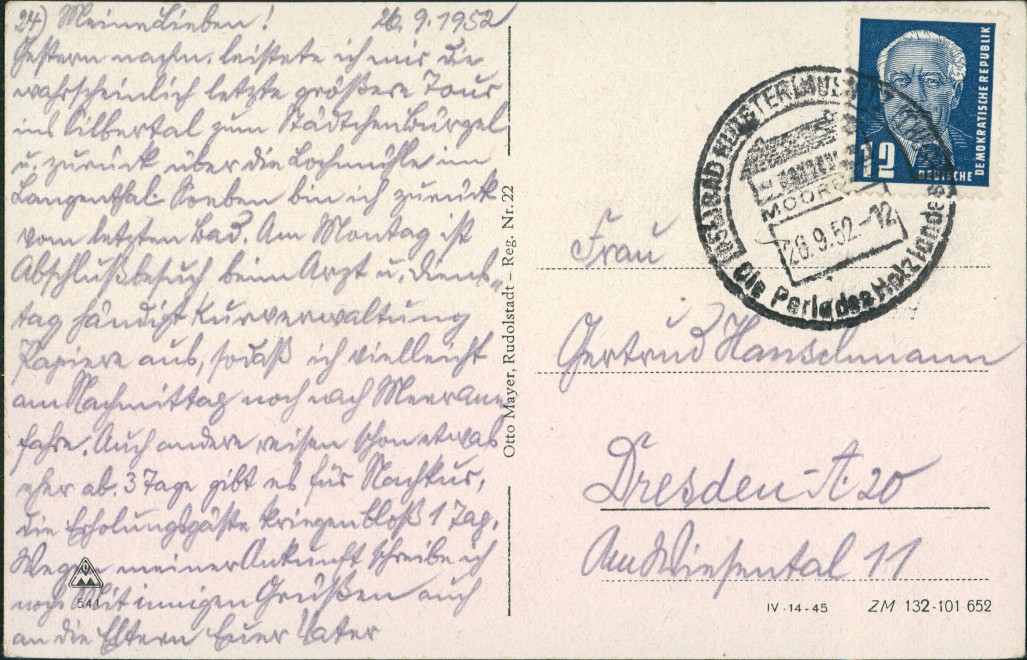 24) Meine Lieben! 26.9.1952
Gestern nachm. leistete ich mir die
wahrscheinlich letzte größere Tour
ins Silbertal zum Städtchen Bürgel
u. zurück über die Lochmühle im
Langenthal. Soeben bin ich zurück
vom letzten Bad. Am Montag ist
Abschlußbesuch beim Arzt u. Diens-
tag händigt Kurverwaltung
Papiere aus, sodaß ich vielleicht
am Nachmittag noch nach
fahre. Auch andere reisen schon etwas
eher ab. 3 Tage gibt es für Nachkur,
die Erholungsgäste kriegen bloß 1 Tag.
Wegen meiner Ankunft schreibe ich
noch. Mit innigen Grüßen auch
an die Eltern Euer Vater
541
Otto Mayer, Rudolstadt – Reg. Nr. 22
12
DEUTSCHE DEMOKRATISCHE REPUBLIK
BAD KLOSTERLAUSNITZ
MOORBAD
26.9.52.-12
Die Perle des Holzlandes
Frau
Gertrud Hanschmann
Dresden-A. 20
Am Wiesental 11
IV-14-45 ZM 132-101 652